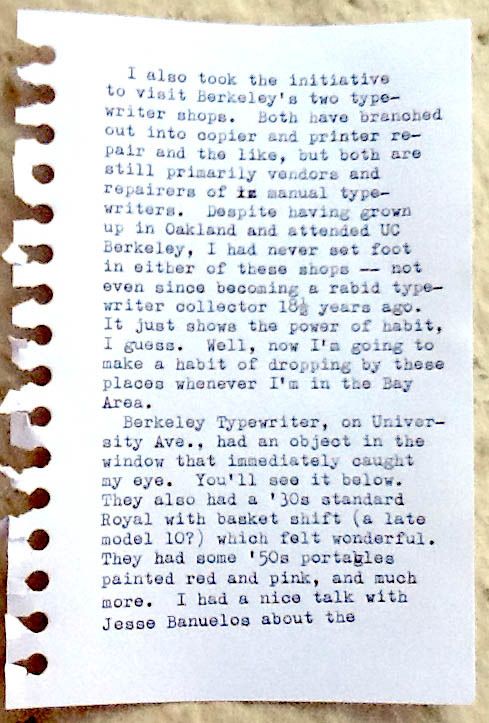 I also took the initiative
to visit Berkeley's two type-
writer shops. Both have branched
out into copier and printer re-
pair and the like, but both are
still primarily vendors and
repairers of manual type-
writers. Despite having grown
up in Oakland and attended UC
Berkeley, I had never set foot
in either of these shops -- not
even since becoming a rabid type-
writer collector 18½ years ago.
It just shows the power of habit,
I guess. Well, now I'm going to
make a habit of dropping by these
places whenever I'm in the Bay
Area.
Berkeley Typewriter, on Univer-
sity Ave., had an object in the
window that immediately caught
my eye. You'll see it below.
They also had a '30s standard
Royal with basket shift (a late
model 10?) which felt wonderful.
They had some '50s portables
painted red and pink, and much
more. I had a nice talk with
Jesse Banuelos about the